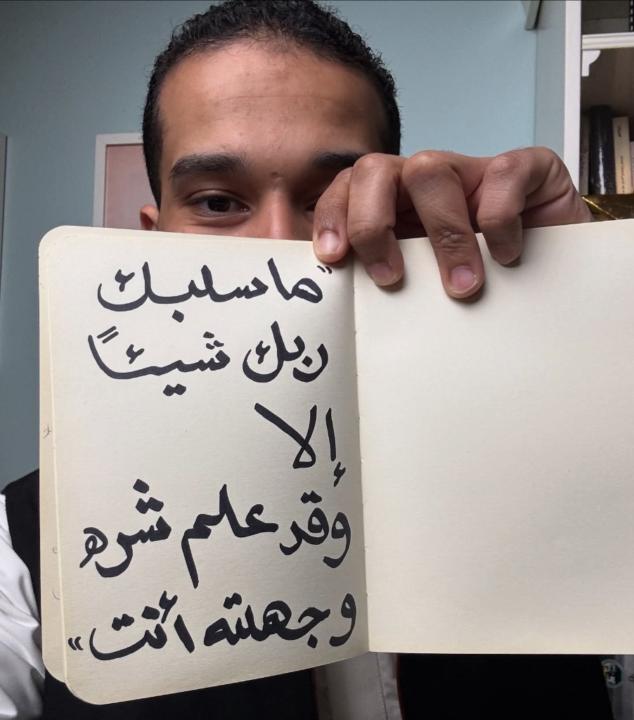 "ما سلبك
ربك شيئًا
إلا
وقد علم شره
وجهلته أنت"